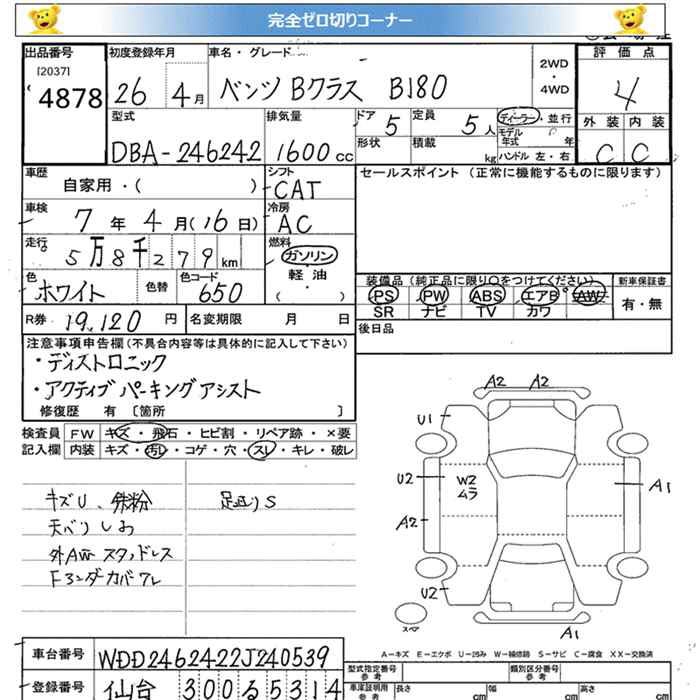 完全ゼロ切りコーナー
出品番号 初度登録年月 車名・グレード 2WD・4WD 評価点
[2037]
4878 26 4月 ベンツ Bクラス B180 4
型式 排気量 ドア 5 定員 5人 ディーラー・並行 外装 内装
モデル年式 年
DBA-246242 1600cc 形状 積載 kg ハンドル 左・右 C C
車歴 シフト セールスポイント (正常に機能するものに限ります)
自家用・( ) CAT
車検 冷房
7年4月(16日) AC
走行 燃料
5万8千279km ガソリン
色 色替 色コード 軽・油 装備品(純正品に限り○をつけてください) 新車保証書
ホワイト 650 ( ) PS PW ABS エアB AW 有・無
SR ナビ TV カワ
R券 19,120円 名変期限 月 日 後日品
注意事項申告欄(不具合内容等は具体的に記入して下さい)
・ディストロニック
・アクティブパーキングアシスト
修復歴 有 〔箇所 〕
検査員 FW キズ・飛石・ヒビ割・リペア跡・×要
記入欄 内装 キズ・汚レ・コゲ・穴・スレ・キレ・破レ
キズU、鉄粉
天バリしお
外AW スタッドレス
Fアンダカバワレ
足廻りS
A2 A2
U1
U2 W2 ムラ A1
A2
U2
スペア A1
A-キズ E-エクボ U-凹み W-補修跡 S-サビ C-腐食 XX-交換済
車台番号 WDD2462422J240539 型式指定番号 参考 類別区分番号 参考
登録番号 仙台 300る5314 車庫証明用 参考 長さ cm 幅 cm 高さ cm